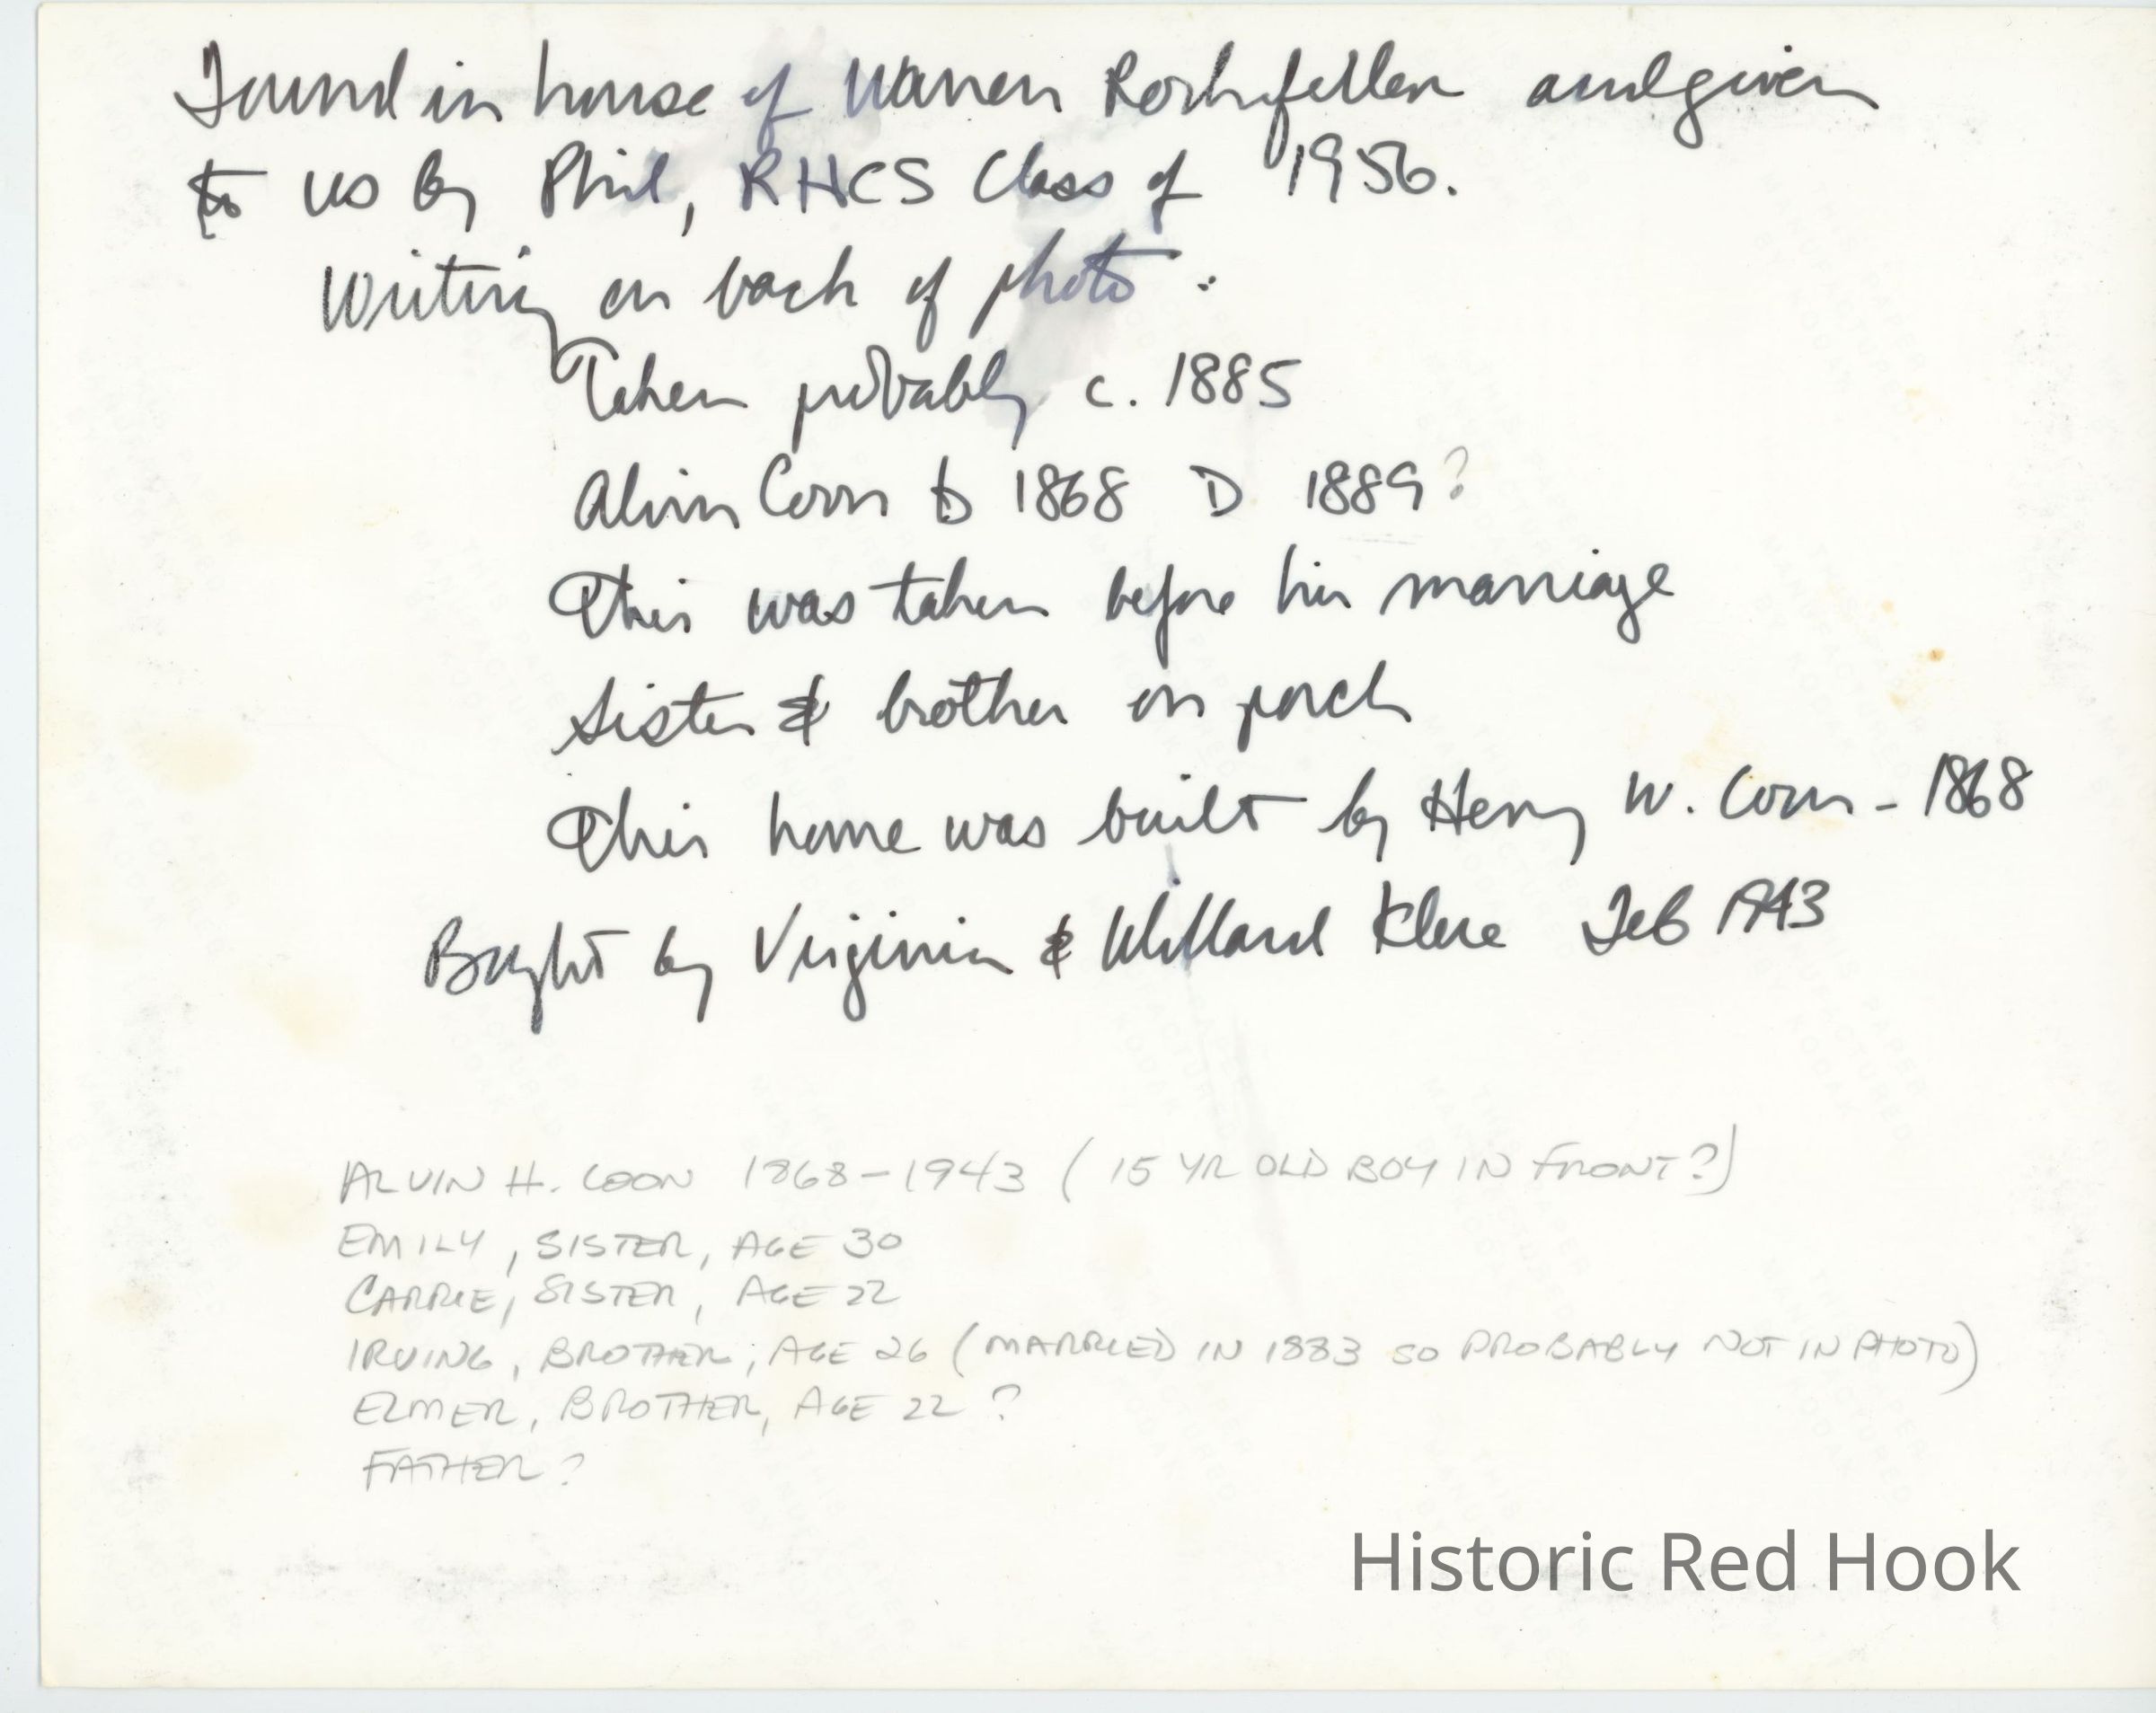 Found in house of Warren Rockefeller and given
to us by Phil, RHCS Class of 1956.
Writing on back of photo :
Taken probably c. 1885
Alvin Coon b 1868 D 1889?
This was taken before his marriage
Sister & brother on porch
This home was built by Henry W. Coon - 1868
Bought by Virginia & Willard Klose Feb 1943
ALVIN H. COON 1868-1943 (15 YR OLD BOY IN FRONT?)
EMILY, SISTER, AGE 30
CARRIE, SISTER, AGE 22
IRVING, BROTHER, AGE 26 (MARRIED IN 1883 SO PROBABLY NOT IN PHOTO)
ELMER, BROTHER, AGE 22 ?
FATHER?
Historic Red Hook